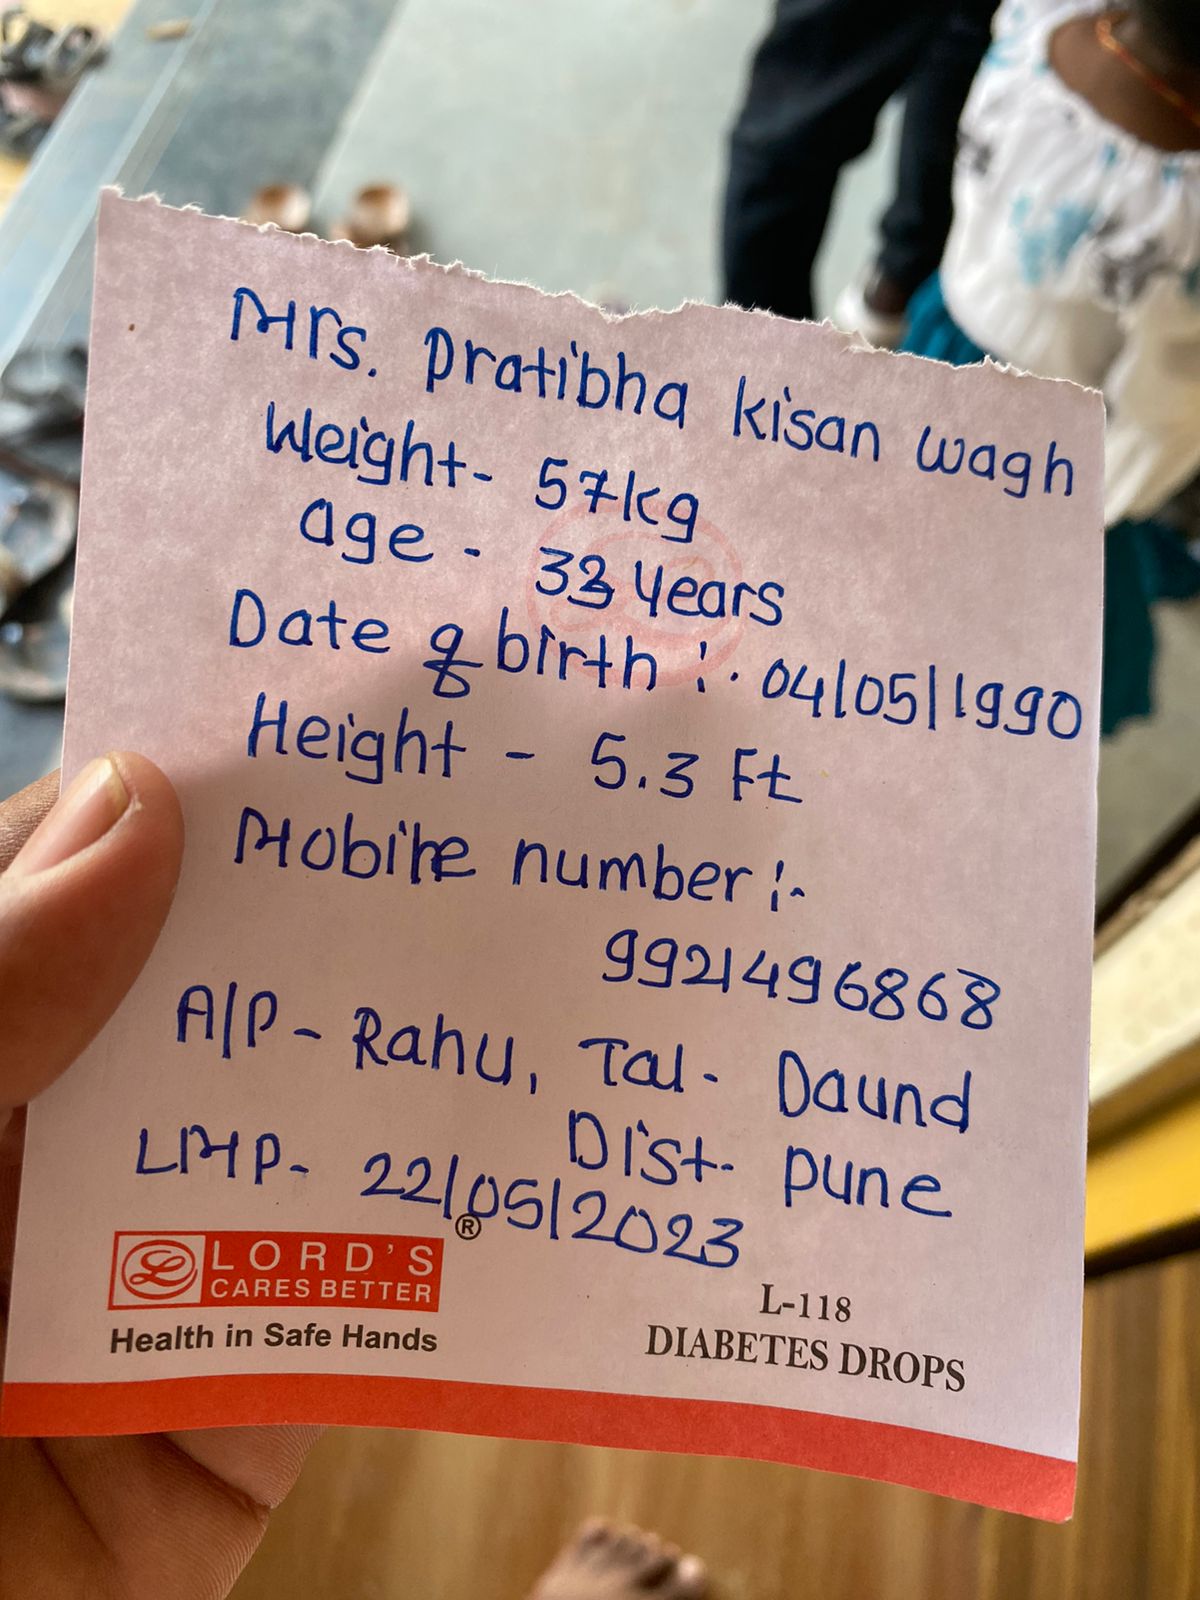 Mrs. Pratibha Kisan Wagh
Weight- 57kg
age - 33 Years
Date of birth :- 04/05/1990
Height - 5.3 Ft
Mobile number :-
9921496868
A/P- Rahu, Tal- Daund
Dist- pune
LMP- 22/05/2023
LORD'S ®
CARES BETTER
Health in Safe Hands
L-118
DIABETES DROPS